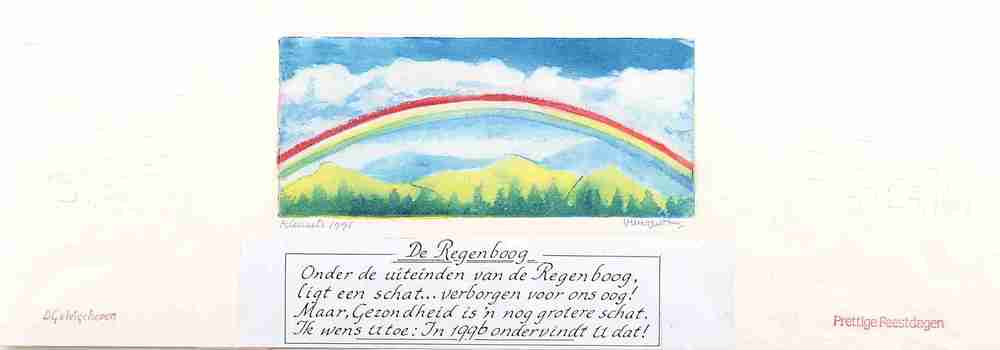 1995
De Regenboog
Onder de uiteinden van de Regenboog,
ligt een schat... verborgen voor ons oog!
Maar, Gezondheid is 'n nog grotere schat.
Ik wens U toe: In 1996 ondervindt U dat!
Prettige Feestdagen